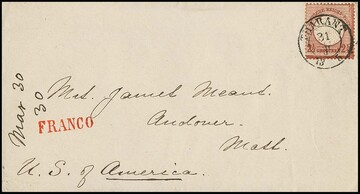 THARANT
31
2½
Mar 30
30
FRANCO
Mrs. James Means.
Andover.
Mass.
U. S. of America.